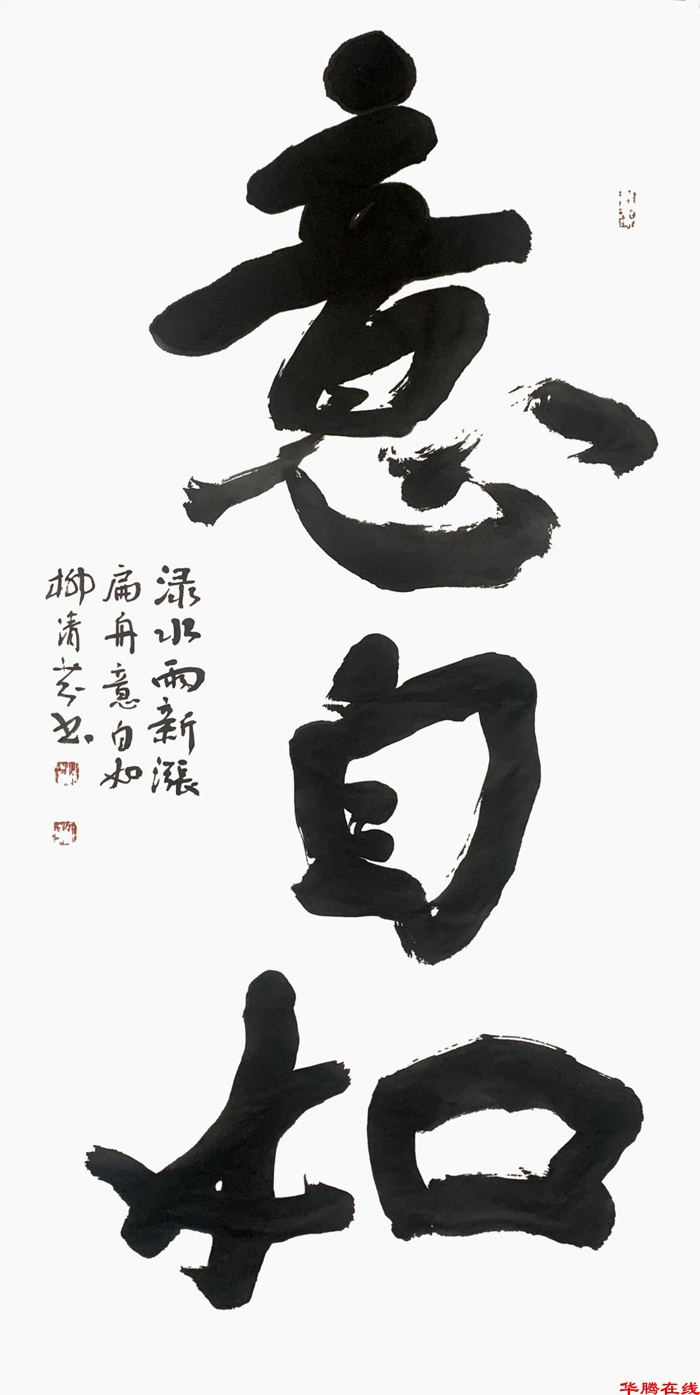 意自如
渌水雨新漲
扁舟意自如
柳清芬书
华腾在线